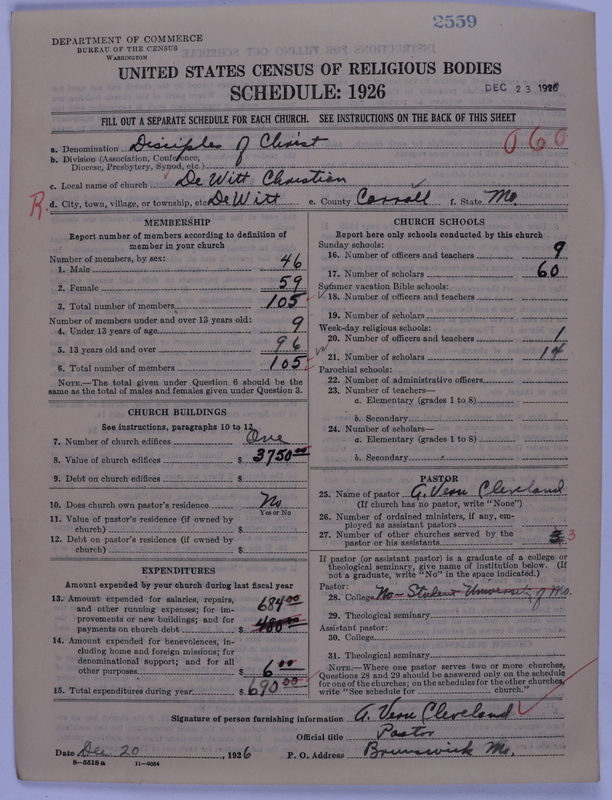 2559
DEPARTMENT OF COMMERCE
BUREAU OF THE CENSUS
WASHINGTON
UNITED STATES CENSUS OF RELIGIOUS BODIES
SCHEDULE: 1926
DEC 23 1926
FILL OUT A SEPARATE SCHEDULE FOR EACH CHURCH. SEE INSTRUCTIONS ON THE BACK OF THIS SHEET
a. Denomination Disciples of Christ 060
b. Division (Association, Conference,
Diocese, Presbytery, Synod, etc.)
c. Local name of church De Witt Christian
R. d. City, town, village, or township, etc. De Witt e. County Carroll f. State Mo.
MEMBERSHIP
Report number of members according to definition of
member in your church
Number of members, by sex:
1. Male 46
2. Female 59
3. Total number of members 105
Number of members under and over 13 years old:
4. Under 13 years of age 9
5. 13 years old and over 96
6. Total number of members 105
NOTE.—The total given under Question 6 should be
same as the total of males and females given under Question 3.
CHURCH BUILDINGS
See instructions, paragraphs 10 to 12
7. Number of church edifices One
8. Value of church edifices $ 3750.00
9. Debt on church edifices $
10. Does church own pastor's residence No
Yes or No
11. Value of pastor's residence (if owned by
church) $
12. Debt on pastor's residence (if owned by
church) $
EXPENDITURES
Amount expended by your church during last fiscal year
13. Amount expended for salaries, repairs,
and other running expenses; for im-
provements or new buildings; and for
payments on church debt $ 684.00 480.00
14. Amount expended for benevolences, in-
cluding home and foreign missions; for
denominational support; and for all
other purposes $ 6.00
15. Total expenditures during year $ 690.00
CHURCH SCHOOLS
Report here only schools conducted by this church
Sunday schools:
16. Number of officers and teachers 9
17. Number of scholars 60
Summer vacation Bible schools:
18. Number of officers and teachers
19. Number of scholars
Week-day religious schools:
20. Number of officers and teachers 1
21. Number of scholars 14
Parochial schools:
22. Number of administrative officers
23. Number of teachers—
a. Elementary (grades 1 to 8)
b. Secondary
24. Number of scholars—
a. Elementary (grades 1 to 8)
b. Secondary
PASTOR
25. Name of pastor A. Vern Cleveland
(If church has no pastor, write "None")
26. Number of ordained ministers, if any, em-
ployed as assistant pastors
27. Number of other churches served by the
pastor or his assistants 3 3
If pastor (or assistant pastor) is a graduate of a college or
theological seminary, give name of institution below. (If
not a graduate, write "No" in the space indicated.)
Pastor:
28. College No - Student University of Mo.
29. Theological seminary
Assistant pastor:
30. College
31. Theological seminary
NOTE.—Where one pastor serves two or more churches,
Questions 28 and 29 should be answered only on the schedule
for one of the churches; on the schedules for the other churches,
write "See schedule for church."
Signature of person furnishing information A. Vern Cleveland
Official title Pastor
Date Dec 20, 1926 P. O. Address Brunswick Mo.
8—5518a 11—9024